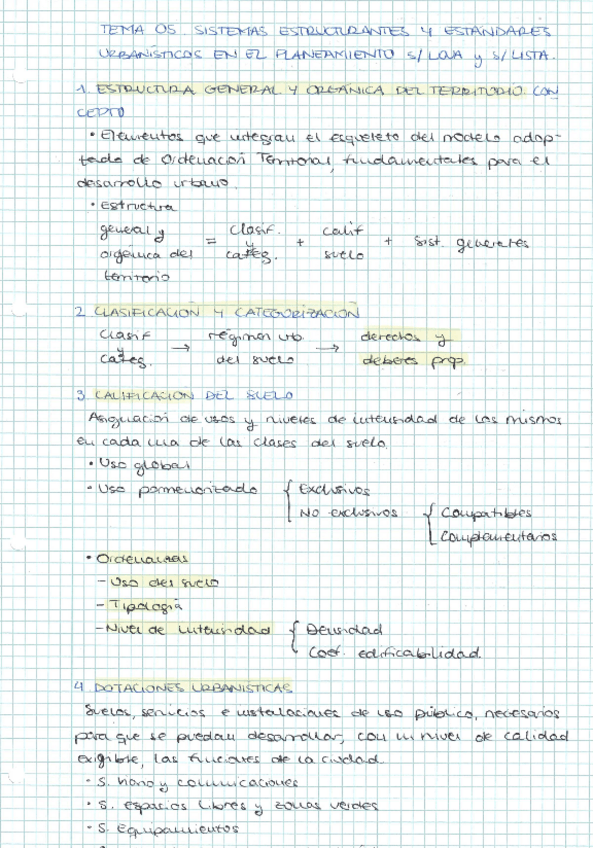 TEMA 05. SISTEMAS ESTRUCTURANTES Y ESTÁNDARES
URBANÍSTICOS EN EL PLANEAMIENTO S/ LOUA y S/ LISTA.
1. ESTRUCTURA GENERAL Y ORGÁNICA DEL TERRITORIO. CON
CEPTO
• Elementos que integran el esqueleto del modelo adop-
tado de Ordenación Territorial, fundamentales para el
desarrollo urbano.
• Estructura
general y
orgánica del
territorio
= Clasif. y categ. + calif suelo + Sist. generales
2. CLASIFICACIÓN Y CATEGORIZACIÓN
Clasif y categ. → régimen urb. del suelo → derechos y deberes prop.
3. CALIFICACIÓN DEL SUELO
Asignación de usos y niveles de intensidad de los mismos
en cada una de las clases del suelo.
• Uso global
• Uso pormenorizado { Exclusivos
No exclusivos { Compatibles
Complementarios
• Ordenanzas
- Uso del suelo
- Tipología
- Nivel de intensidad { Densidad
Coef. edificabilidad.
4. DOTACIONES URBANÍSTICAS
Suelos, servicios e instalaciones de uso público, necesarios
para que se puedan desarrollar, con un nivel de calidad
exigible, las funciones de la ciudad.
- S. viario y comunicaciones
- S. espacios libres y zonas verdes
- S. equipamientos